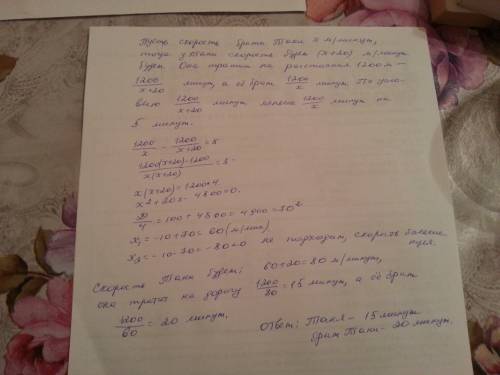 Пусть скорость брата Тани x м/минут,
тогда у Тани скорость будет (x+20) м/минут
будет. Она тратит на расстояния 1200м —
1200/x+20 минут, а её брат 1200/x минут. По усло-
вию 1200/x+20 минут 1200/x минут на
5 минут.
1200/x - 1200/x+20 = 5
1200(x+20)-1200/x(x+20) = 5
x(x+20) = 1200·4
x²+20x-4800=0.
D/4 = 100+4800=4900=70²
x₁=-10+70=60 (м/мин)
x₂=-10-70=-80<0 не подходит, скорость
Скорость Тани будет: 60+20=80 м/минут,
она тратит на дорогу 1200/80=15 минут, а её брат
1200/60=20 минут.
Ответ: Таня - 15 минут
брат Тани - 20 минут.